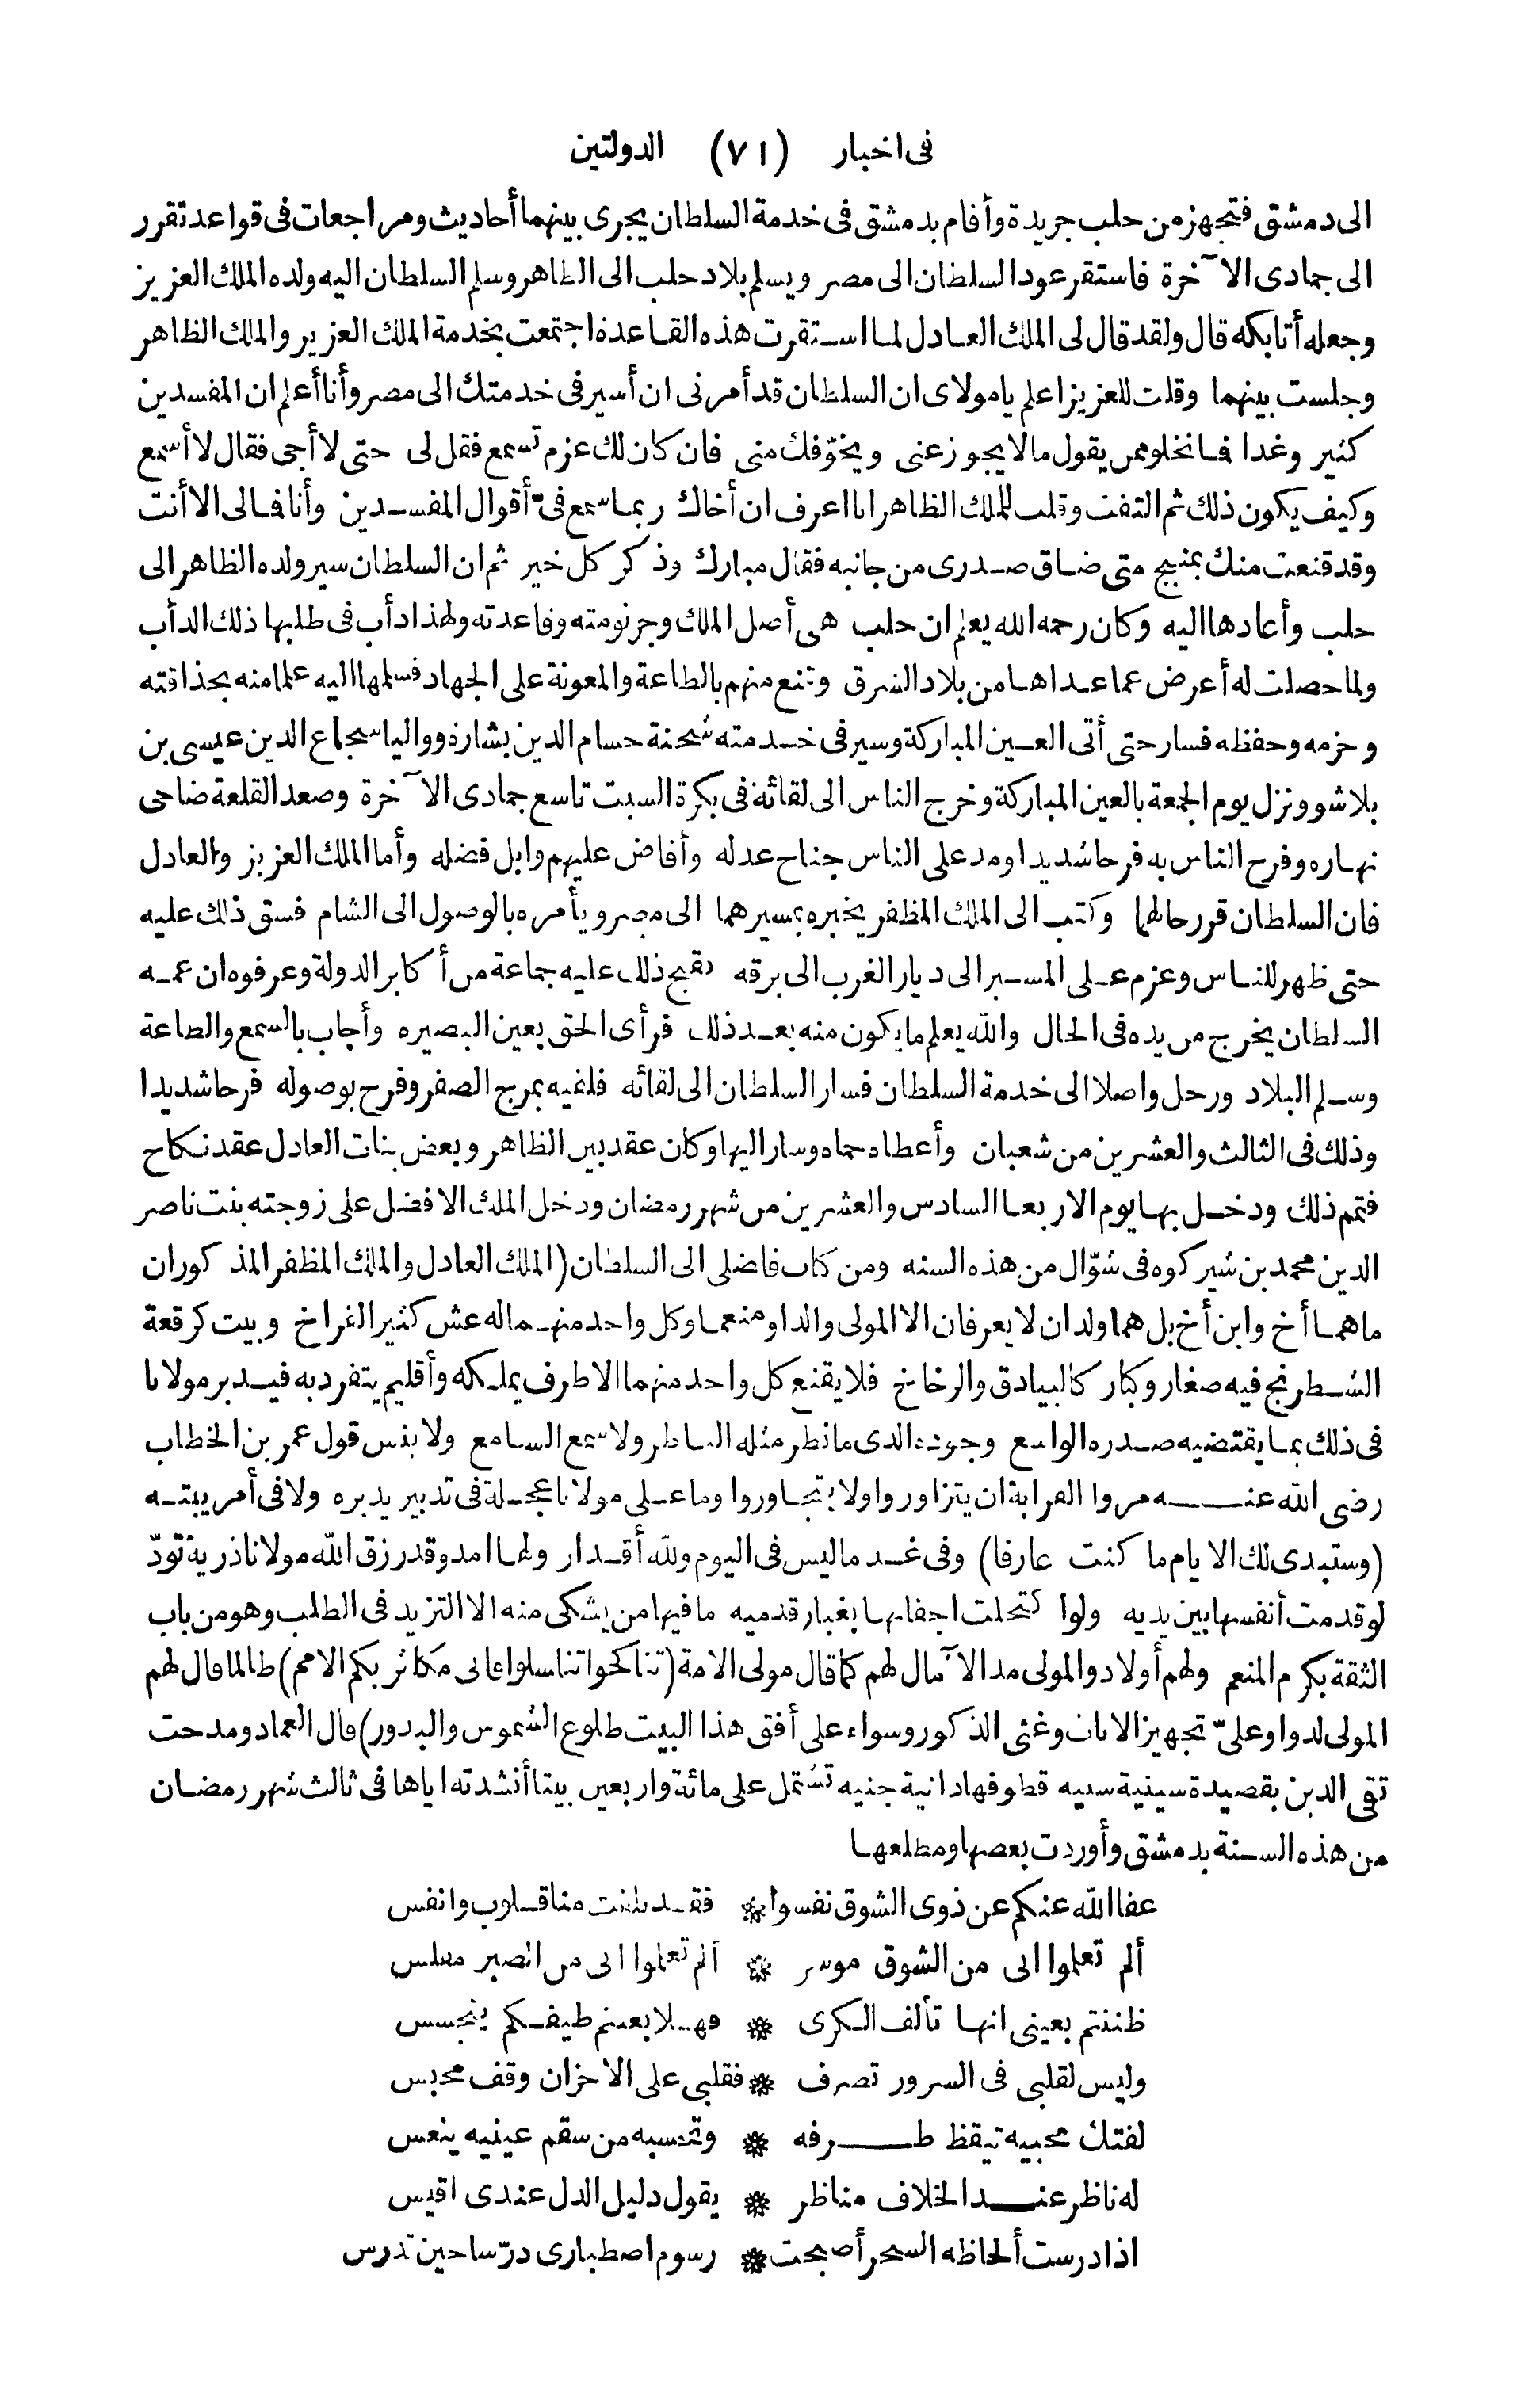 فى اخبار (٧١) الدولتين
الى دمشق فتجهز من حلب جريدة وأقام بدمشق فى خدمة السلطان يجرى بينهما أحاديث ومراجعات فى قواعد تقرر
الى جمادى الآخرة فاستقر عود السلطان الى مصر ويسلم بلاد حلب الى الظاهر وسلم السلطان اليه ولده الملك العزيز
وجعله أتابكه قال ولقد قال لى الملك العادل لما استقرت هذه القاعدة اجتمعت بخدمة الملك العزيز والملك الظاهر
وجلست بينهما وقلت للعزيز اعلم يا مولاى ان السلطان قد أمرنى ان أسير فى خدمتك الى مصر وأنا أعلم ان المفسدين
كثير وغدا فما نخلو ممن يقول ما لا يجوز عنى ويخوّفك منى فان كان لك عزم تسمع فقل لى حتى لا أجى فقال لا أسمع
وكيف يكون ذلك ثم التفت وقلت للملك الظاهر انا اعرف ان أخاك ربما سمع فىّ أقوال المفسدين وأنا فمالى الا أنت
وقد قنعت منك بمنبج متى ضاق صدرى من جانبه فقال مبارك وذكر كل خير ثم ان السلطان سير ولده الظاهر الى
حلب وأعادها اليه وكان رحمه الله يعلم ان حلب هى أصل الملك وجرثومته وقاعدته ولهذا دأب فى طلبها ذلك الدأب
ولما حصلت له أعرض عما عداها من بلاد الشرق وقنع منهم بالطاعة والمعونة على الجهاد فسلمها اليه علما منه بحذاقته
وحزمه وحفظه فسار حتى أتى العين المباركة وسير فى خدمته شحنة حسام الدين بشارة وواليا شجاع الدين عيسى بن
بلاشو ونزل يوم الجمعة بالعين المباركة وخرج الناس الى لقائه فى بكرة السبت تاسع جمادى الآخرة وصعد القلعة ضاحى
نهاره وفرح الناس به فرحا شديدا ومد على الناس جناح عدله وأفاض عليهم وابل فضله وأما الملك العزيز والعادل
فان السلطان قرر حالهما وكتب الى الملك المظفر يخبره بمسيرهما الى مصر ويأمره بالوصول الى الشام فسق ذلك عليه
حتى ظهر للناس وعزم على المسير الى ديار الغرب الى برقه فقبح ذلك عليه جماعة من أكابر الدولة وعرفوه ان عمه
السلطان يخرج من يده فى الحال والله يعلم ما يكون منه بعد ذلك فرأى الحق بعين البصيره وأجاب بالسمع والطاعة
وسلم البلاد ورحل واصلا الى خدمة السلطان فسار السلطان الى لقائه فلقيه بمرج الصفر وفرح بوصوله فرحا شديدا
وذلك فى الثالث والعشرين من شعبان وأعطاه حماه وسار اليها وكان عقد بين الظاهر وبعض بنات العادل عقد نكاح
فتم ذلك ودخل بها يوم الاربعا السادس والعشرين من شهر رمضان ودخل الملك الافضل على زوجته بنت ناصر
الدين محمد بن شيركوه فى شوّال من هذه السنه ومن كتاب فاضلى الى السلطان (الملك العادل والملك المظفر المذكوران
ما هما أخ وابن أخ بل هما ولدان لا يعرفان الا المولى والدا ومنعما وكل واحد منهما له عش كثير الفراخ وبيت كرقعة
الشطرنج فيه صغار وكبار كالبيادق والرخاخ فلا يقنع كل واحد منهما الا طرف يملكه وأقليم يتفرد به فيدبر مولانا
فى ذلك بما يقتضيه صدره الواسع وجوده الدى ما نظر مثله الناظر ولا سمع السامع ولا ينس قول عمر بن الخطاب
رضى الله عنه مروا القرابة ان يتزاوروا ولا يتجاوروا وما على مولانا عجلة فى تدبير يدبره ولا فى أمر يبته
(وستبدى لك الايام ما كنت عارفا) وفى غد ما ليس فى اليوم ولله أقدار ولها امد وقد رزق الله مولانا ذرية تودّ
لو قدمت أنفسها بين يديه ولو اكتحلت اجفانها بغبار قدميه ما فيها من يشكى منه الا التزيد فى الطلب وهو من باب
الثقة بكرم المنعم ولهم أولاد والمولى مد الآمال لهم كما قال مولى الامة (تناكحوا تناسلوا فانى مكاثر بكم الامم) طالما قال لهم
المولى لدوا وعلىّ تجهيز الاناث وغنى الذكور وسواء على أفق هذا البيت طلوع الشموس والبدور) قال العماد ومدحت
تقى الدين بقصيدة سينية سنيه قطوفها دانية جنيه تشتمل على مائة واربعين بيتا أنشدته اياها فى ثالث شهر رمضان
من هذه السنة بدمشق وأوردت بعضها ومطلعها
عفا الله عنكم عن ذوى الشوق نفسوا * فقد تلفت منا قلوب وانفس
ألم تعلموا انى من الشوق موسر * ألم تعلموا انى من الصبر مفلس
ظننتم بعينى انها تألف الكرى * فهلا بعثتم طيفكم يتجسس
وليس لقلبى فى السرور تصرف * فقلبى على الاحزان وقف محبس
لفتك محبيه تيقظ طرفه * وتحسبه من سقم عينيه ينعس
له ناظر عند الخلاف مناظر * يقول دليل الدل عندى اقيس
اذا درست ألحاظه السحر أصبحت * رسوم اصطبارى درّسا حين تدرس